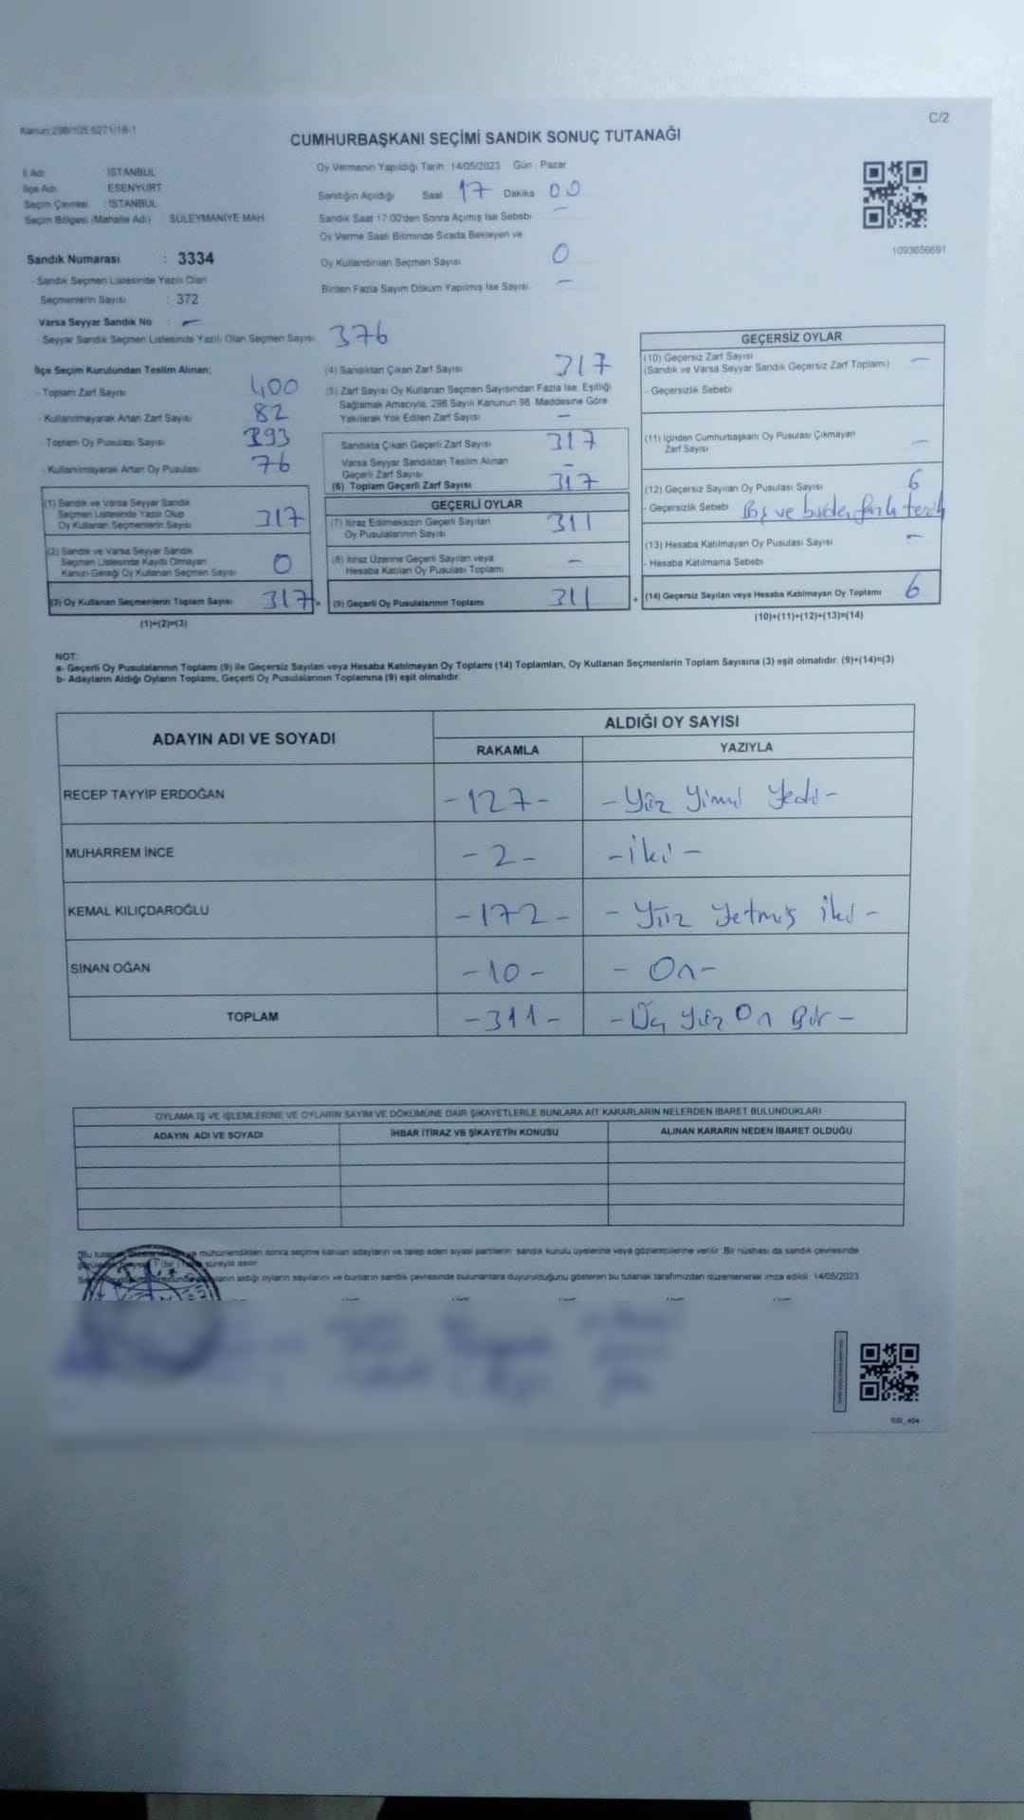 Kanun:298/105 6271/18-1
C/2
CUMHURBAŞKANI SEÇİMİ SANDIK SONUÇ TUTANAĞI
İl Adı: İSTANBUL
İlçe Adı: ESENYURT
Seçim Çevresi: İSTANBUL
Seçim Bölgesi (Mahalle Adı): SÜLEYMANİYE MAH.
Sandık Numarası : 3334
- Sandık Seçmen Listesinde Yazılı Olan
Seçmenlerin Sayısı : 372
Varsa Seyyar Sandık No : -
- Seyyar Sandık Seçmen Listesinde Yazılı Olan Seçmen Sayısı: 376
Oy Vermenin Yapıldığı Tarih: 14/05/2023 Gün: Pazar
Sandığın Açıldığı Saat 17 Dakika 00
Sandık Saat 17:00'den Sonra Açılmış İse Sebebi -
Oy Verme Saati Bitiminde Sırada Bekleyen ve
Oy Kullandırılan Seçmen Sayısı 0
Birden Fazla Sayım Döküm Yapılmış İse Sayısı -
1093656691
İlçe Seçim Kurulundan Teslim Alınan;
- Toplam Zarf Sayısı 400
- Kullanılmayarak Artan Zarf Sayısı 82
- Toplam Oy Pusulası Sayısı 393
- Kullanılmayarak Artan Oy Pusulası 76
(1) Sandık ve Varsa Seyyar Sandık
Seçmen Listesinde Yazılı Olup
Oy Kullanan Seçmenlerin Sayısı 317
(2) Sandık ve Varsa Seyyar Sandık
Seçmen Listesinde Kayıtlı Olmayan
Kanun Gereği Oy Kullanan Seçmen Sayısı 0
(3) Oy Kullanan Seçmenlerin Toplam Sayısı 317
(1)+(2)=(3)
(4) Sandıktan Çıkan Zarf Sayısı 317
(5) Zarf Sayısı Oy Kullanan Seçmen Sayısından Fazla İse, Eşitliği
Sağlamak Amacıyla, 298 Sayılı Kanunun 98. Maddesine Göre
Yakılarak Yok Edilen Zarf Sayısı -
Sandıkta Çıkan Geçerli Zarf Sayısı 317
Varsa Seyyar Sandıktan Teslim Alınan
Geçerli Zarf Sayısı -
(6) Toplam Geçerli Zarf Sayısı 317
GEÇERLİ OYLAR
(7) İtiraz Edilmeksizin Geçerli Sayılan
Oy Pusulalarının Sayısı 311
(8) İtiraz Üzerine Geçerli Sayılan veya
Hesaba Katılan Oy Pusulası Toplamı -
(9) Geçerli Oy Pusulalarının Toplamı 311
GEÇERSİZ OYLAR
(10) Geçersiz Zarf Sayısı
(Sandık ve Varsa Seyyar Sandık Geçersiz Zarf Toplamı) -
- Geçersizlik Sebebi
(11) İçinden Cumhurbaşkanı Oy Pusulası Çıkmayan
Zarf Sayısı -
(12) Geçersiz Sayılan Oy Pusulası Sayısı 6
- Geçersizlik Sebebi Boş ve birden fazla tercih
(13) Hesaba Katılmayan Oy Pusulası Sayısı -
- Hesaba Katılmama Sebebi
(14) Geçersiz Sayılan veya Hesaba Katılmayan Oy Toplamı 6
(10)+(11)+(12)+(13)=(14)
NOT:
a- Geçerli Oy Pusulalarının Toplamı (9) ile Geçersiz Sayılan veya Hesaba Katılmayan Oy Toplamı (14) Toplamları, Oy Kullanan Seçmenlerin Toplam Sayısına (3) eşit olmalıdır. (9)+(14)=(3)
b- Adayların Aldığı Oyların Toplamı, Geçerli Oy Pusulalarının Toplamına (9) eşit olmalıdır.
ADAYIN ADI VE SOYADI ALDIĞI OY SAYISI
RAKAMLA YAZIYLA
RECEP TAYYİP ERDOĞAN -127- -Yüz Yirmi Yedi-
MUHARREM İNCE -2- -İki-
KEMAL KILIÇDAROĞLU -172- -Yüz Yetmiş İki-
SİNAN OĞAN -10- -On-
TOPLAM -311- -Üç Yüz On Bir-
OYLAMA İŞ VE İŞLEMLERİNE VE OYLARIN SAYIM VE DÖKÜMÜNE DAİR ŞİKAYETLERLE BUNLARA AİT KARARLARIN NELERDEN İBARET BULUNDUKLARI
ADAYIN ADI VE SOYADI İHBAR İTİRAZ VE ŞİKAYETİN KONUSU ALINAN KARARIN NEDEN İBARET OLDUĞU
Bu mühürlendikten sonra seçime katılan adayların ve talep eden siyasi partilerin sandık kurulu üyelerine veya gözlemcilerine verilir. Bir nüshası da sandık çevresinde
süreyle asılır.
aldığı oyların sayılarını ve bunların sandık çevresinde bulunanlara duyurulduğunu gösteren bu tutanak tarafımızdan düzenlenerek imza edildi. 14/05/2023
T.C.